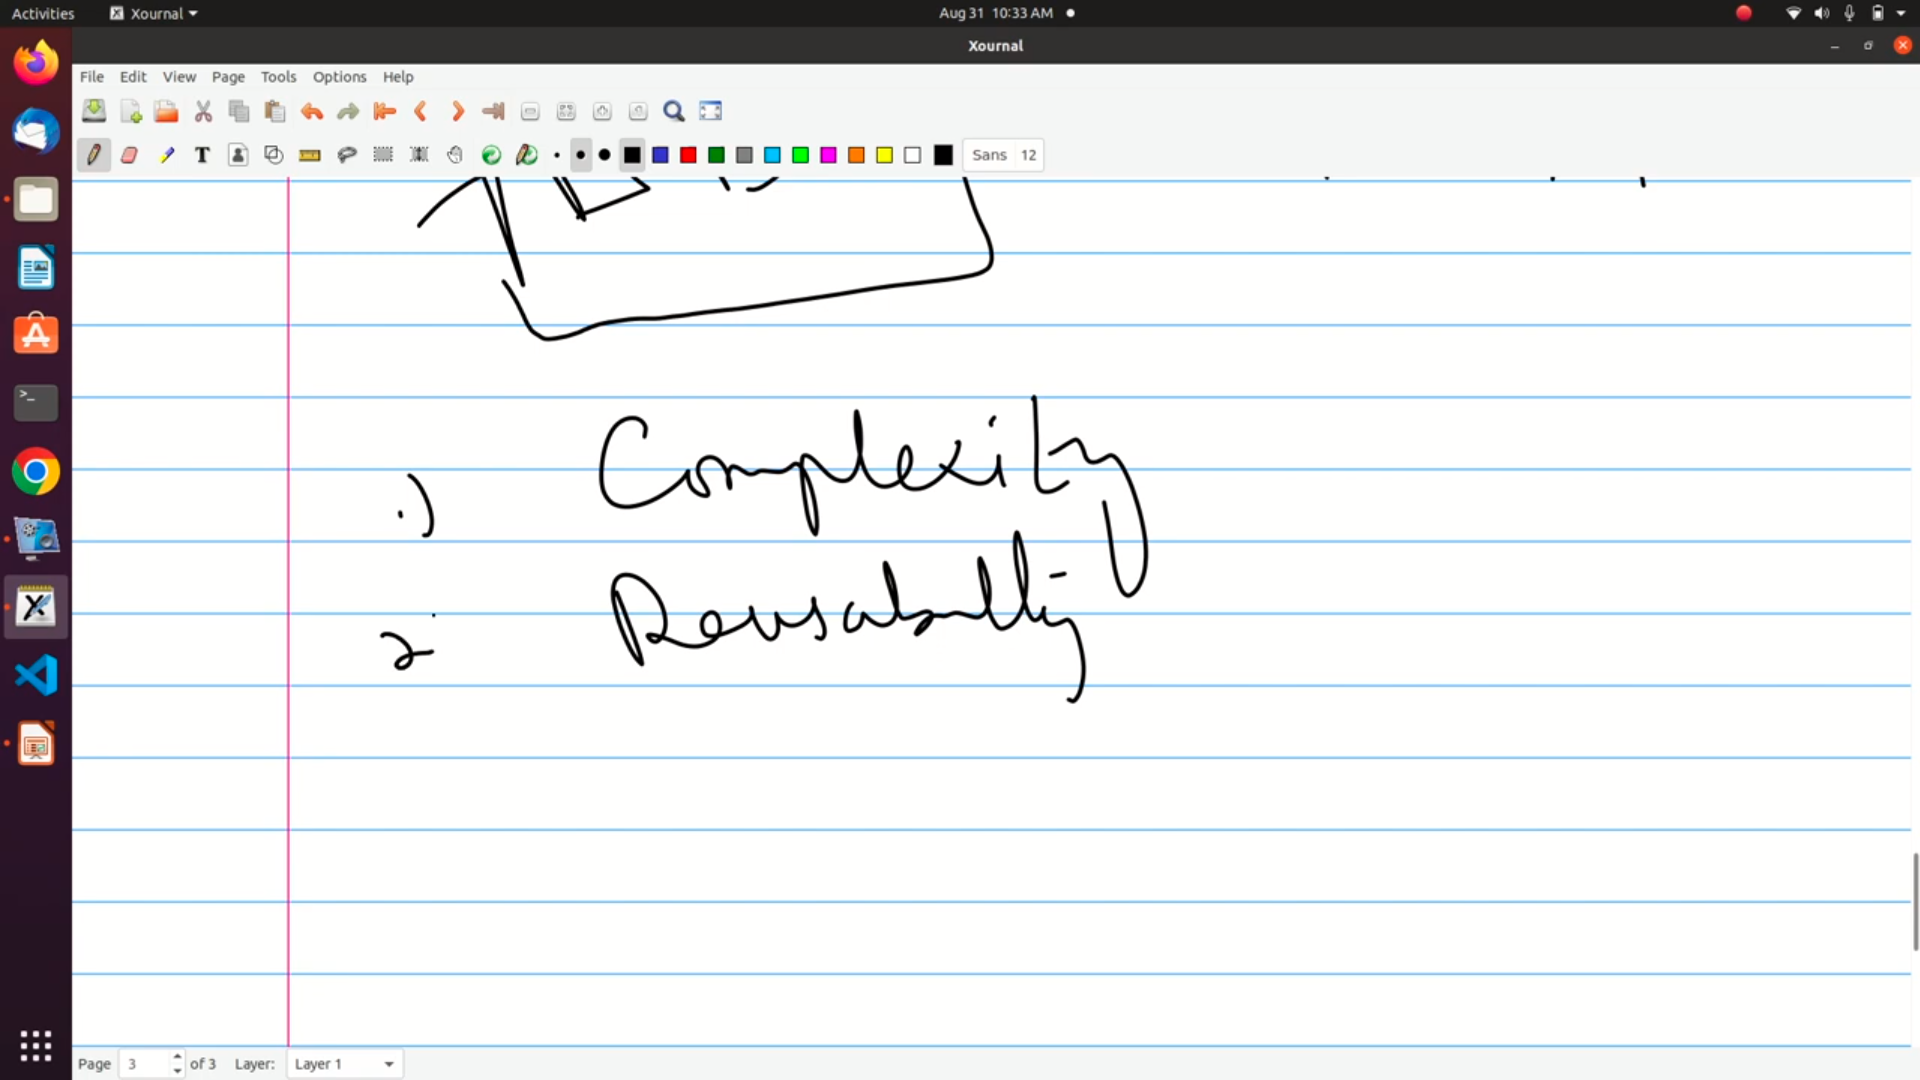 Activities Xournal Aug 31 10:33 AM
Xournal
File Edit View Page Tools Options Help
T Sans 12
1) Complexity
2 Reusability
Page 3 of 3 Layer: Layer 1